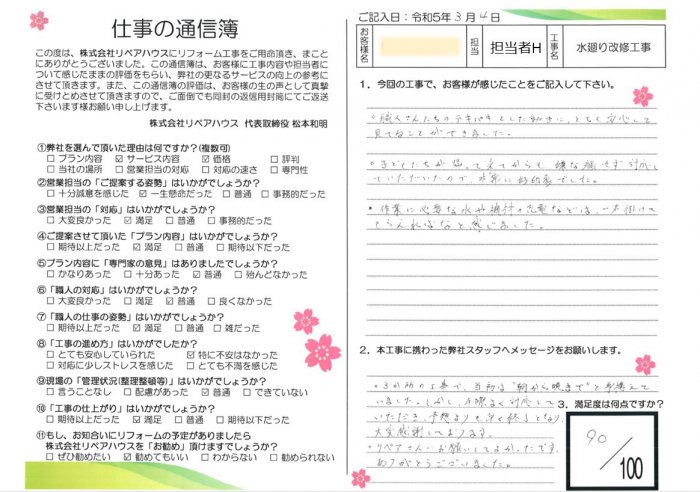 仕事の通信簿
この度は、株式会社リペアハウスにリフォーム工事をご用命頂き、まこと
にありがとうございました。この通信簿は、お客様に工事内容や担当者に
ついて感じたままの評価をもらい、弊社の更なるサービスの向上の参考に
させて頂きます。また、この通信簿の評価は、お客様の生の声として真摯
に受けとめさせて頂きますので、ご面倒でも同封の返信用封筒にてご返送
下さいます様お願い申し上げます。
株式会社リペアハウス 代表取締役 松本和明
①弊社を選んで頂いた理由は何ですか?(複数可)
□ プラン内容 ☑ サービス内容 ☑ 価格 □ 評判
□ 当社の場所 □ 営業担当の対応 □ 対応の速さ □ 専門性
②営業担当の「ご提案する姿勢」はいかがでしょうか?
□ 十分誠意を感じた ☑ 一生懸命だった □ 普通 □ 事務的だった
③営業担当の「対応」はいかがでしょうか?
□ 大変良かった ☑ 満足 □ 普通 □ 事務的だった
④ご提案させて頂いた「プラン内容」はいかがでしょうか?
□ 期待以上だった ☑ 満足 □ 普通 □ 期待以下だった
⑤プラン内容に「専門家の意見」はありましたでしょうか?
□ かなりあった □ 十分あった ☑ 普通 □ 殆んどなかった
⑥「職人の対応」はいかがでしょうか?
□ 大変良かった □ 満足 ☑ 普通 □ 良くなかった
⑦「職人の仕事の姿勢」はいかがでしょうか?
□ 期待以上だった ☑ 満足 □ 普通 □ 雑だった
⑧「工事の進め方」はいかがでしたか?
□ とても安心していられた ☑ 特に不安はなかった
□ 対応に少しストレスを感じた □ とても不満を感じた
⑨現場の「管理状況(整理整頓等)」はいかがでしょうか?
□ 言うことなし □ 配慮があった ☑ 普通 □ できていない
⑩「工事の仕上がり」はいかがでしょうか?
□ 期待以上だった ☑ 満足 □ 普通 □ 期待以下だった
⑪もし、お知合いにリフォームの予定がありましたら
株式会社リペアハウスを「お勧め」頂けますでしょうか?
□ ぜひ勧めたい ☑ 勧めてもいい □ わからない □ 勧められない
ご記入日:令和5年3月4日
お客様名
担当
担当者H
工事名
水廻り改修工事
1.今回の工事で、お客様が感じたことをご記入して下さい。
・職人さんたちのテキパキとした動きに、とても安心して
見ていることができました。
・子どもたちが帰って来てからも、嫌な顔せず対応し
ていただいたので、非常に好印象でした。
・作業に必要な水や機材の充電などは、一声掛けて
もらえればなと感じました。
2.本工事に携わった弊社スタッフへメッセージをお願いします。
・3か所の工事で、当初は"朝から晩まで"と考えて
いました。しかし、手際よく対応して
いただき、予想よりも早く終了となり、
大変感謝しております。
・リペアさんにお願いしてよかったです。
ありがとうございました。
3.満足度は何点ですか?
90/100